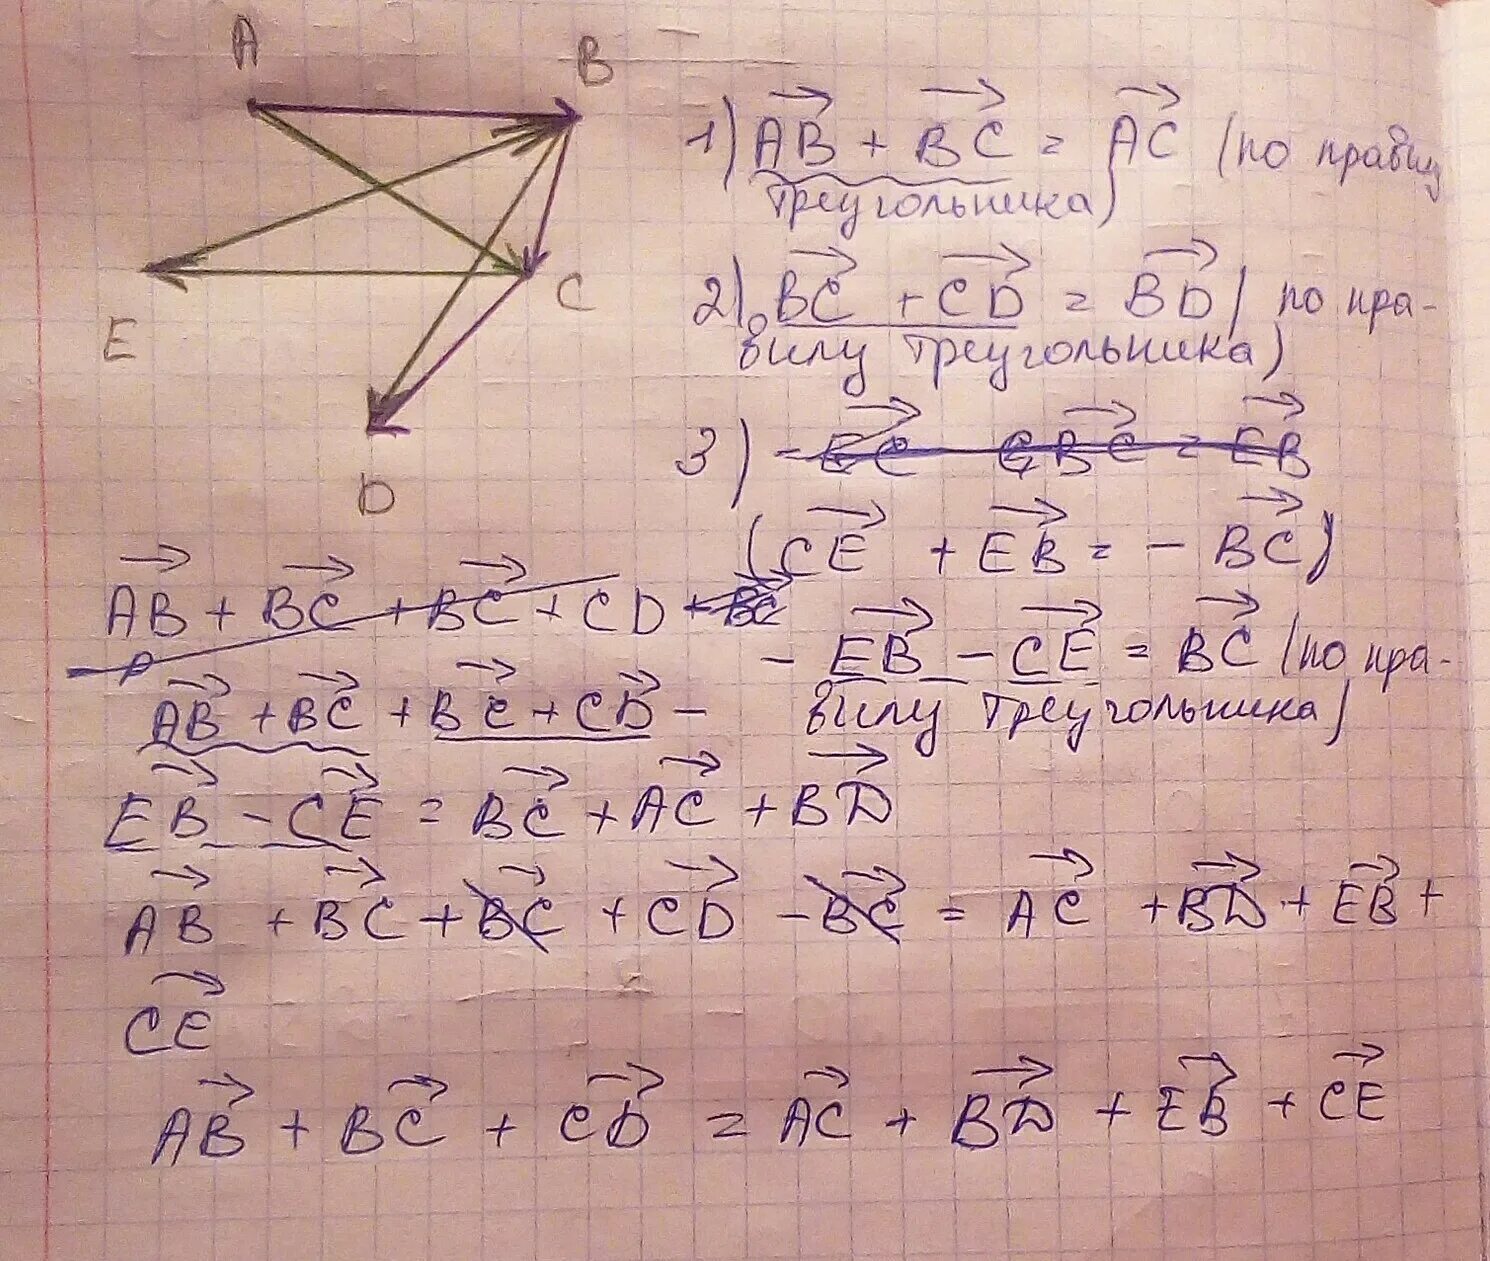 A
B
E
C
D
1) AB + BC = AC (по правилу
треугольника)
2) BC + CD = BD (по пра-
вилу треугольника)
3) - EC BC = EB
(CE + EB = - BC)
- EB - CE = BC (по пра-
вилу треугольника)
AB + BC + BC + CD + BC
AB + BC + BC + CD -
EB - CE = BC + AC + BD
AB + BC + BC + CD - BC = AC + BD + EB +
CE
AB + BC + CD = AC + BD + EB + CE